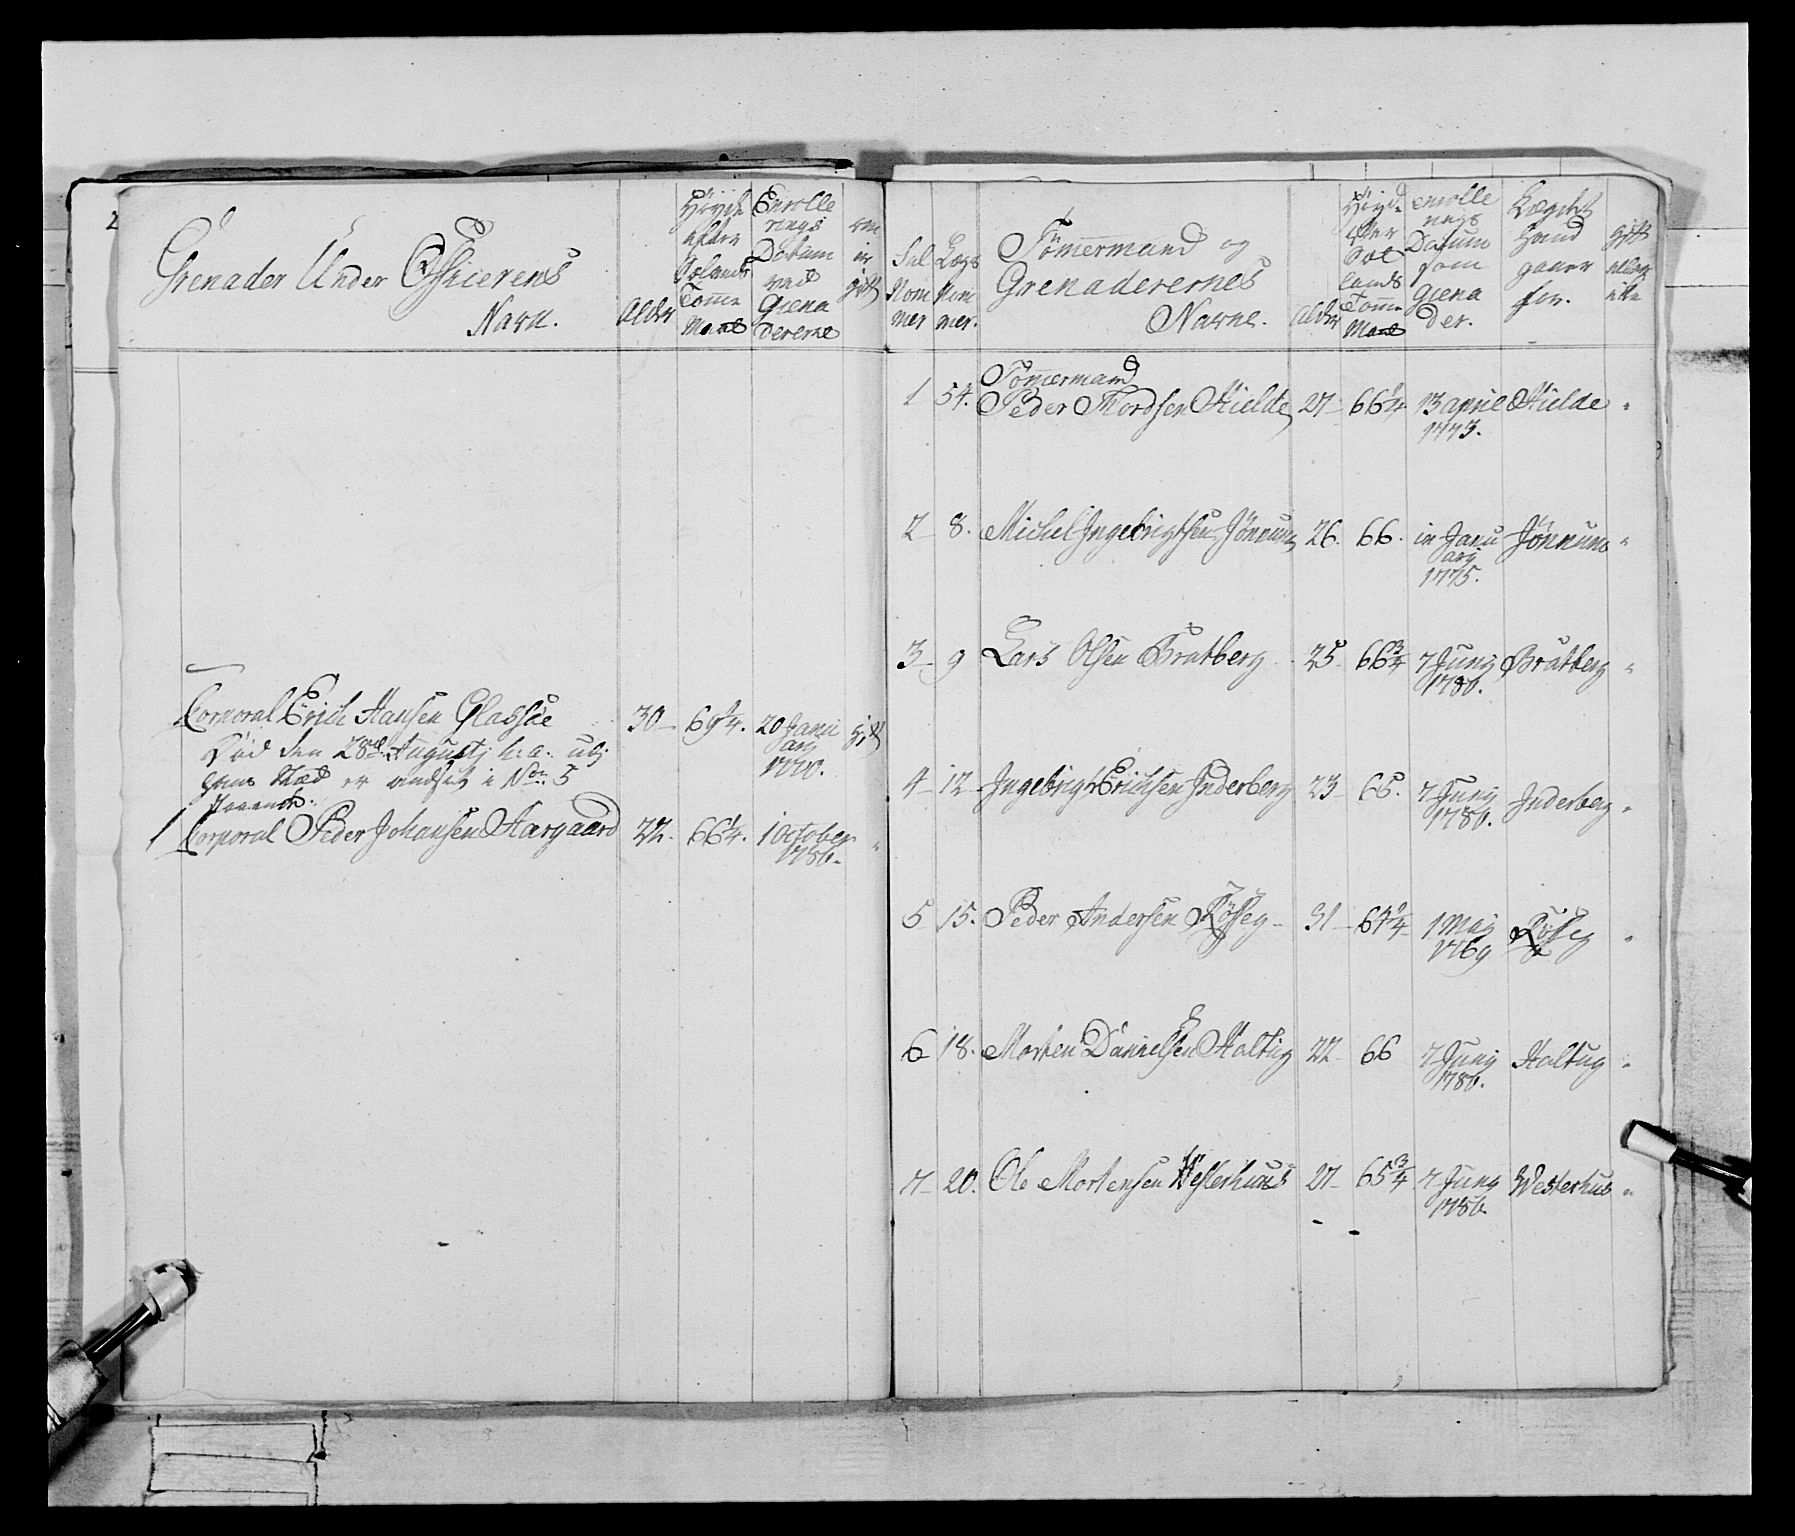 Grenader Under Officierens
Navn.
Alder
Høyde
efter
Sælands
Tomme
Maal
Enrolle
rings
Datum
ved
Grena
dererne
om
er
gift
Corporal Erich Hansen Glassøe 30 69 1/4. 20 Janu
arj
1770. gift
Død den 28de Augustj h: a:
hans Stæd er andsat i No: 5
1 Corporal Peder Johansen Aargaard 22. 66 1/4. 1 October
1780. "
Nom
mer
Lægs
Nom
mer.
Tömmermand og
Grenaderernes
Navne.
Alder
Høyde
efter
Sæl
lands
Tomme
Maal
enrolle
rings
Datum
som
Grena
der.
Lægdet
hand
for.
gift
eller
ike
Tömmermand
1 54. Peder Thordsen Hielde 27 66 1/4 13 april
1773. Hielde "
2 8. Michel Ingebrigtsen Jönnum 26. 66. in Janu
arj
1775. Jönnum "
3 9 Lars Olsen Bratberg 25 66 3/4 7 Junj
1780. Bratberg "
4 12 Ingebrigt Erichsen Inderberg 23 65. 7 Junj
1780. Inderberg "
5 15. Peder Andersen Röseg 31 67 1/4 1 Maj
1769 Röseg "
6 18. Morten Danielsen Haltug 22 66 7 Junj
1780. Haltug "
7 20. Ole Mortensen Westerhuus 27 65 3/4 7 Junj
1780. Westerhus "